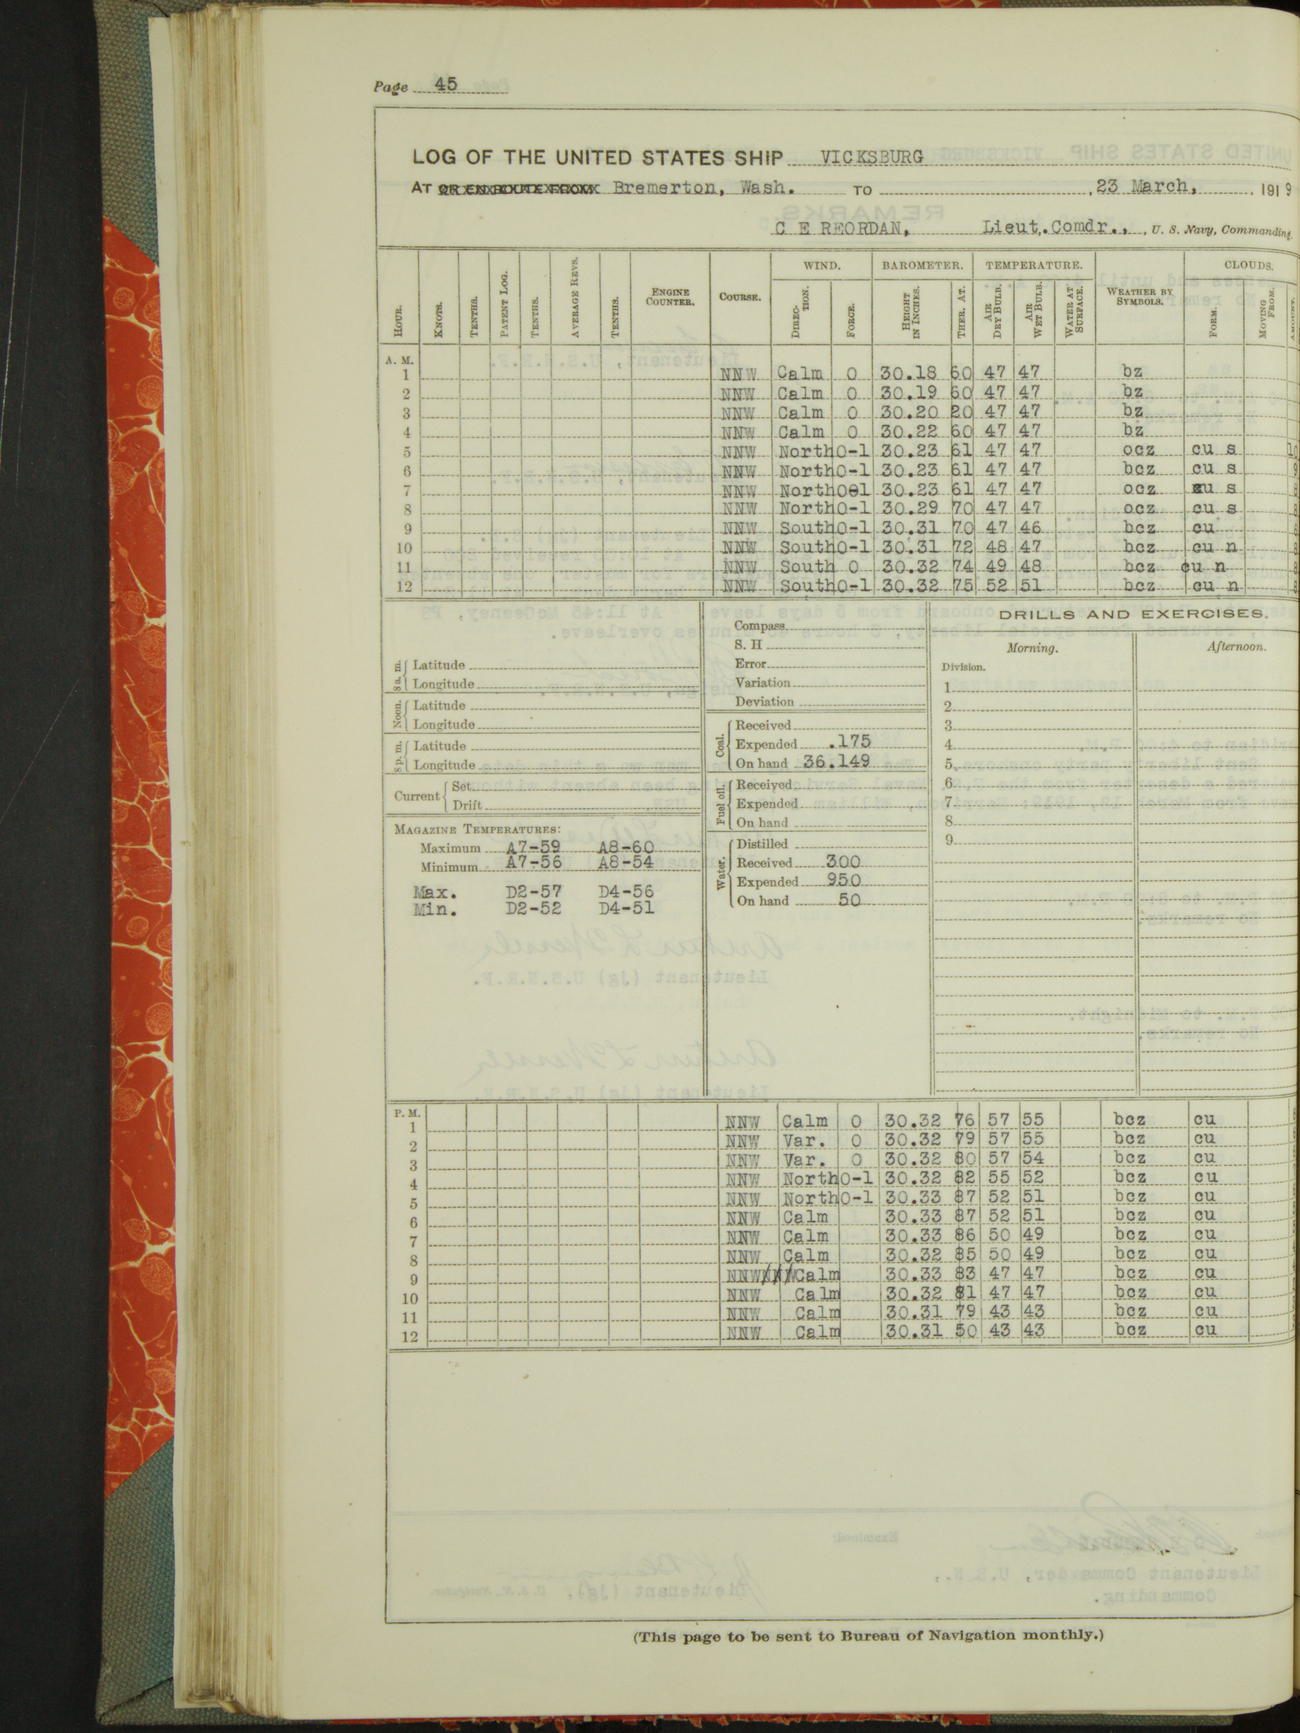 Page 45
LOG OF THE UNITED STATES SHIP VICKSBURG
AT OR EN ROUTE FROM Bremerton, Wash. TO , 23 March, , 1919
C E REORDAN, Lieut. Comdr., , U. S. Navy, Commanding.
WIND. BAROMETER. TEMPERATURE. CLOUDS.
HOUR. KNOTS. TENTHS. PATENT LOG. TENTHS. AVERAGE REVS. TENTHS. ENGINE COUNTER. COURSE. DIRECTION. FORCE. HEIGHT IN INCHES. THER. AT. AIR DRY BULB. AIR WET BULB. WATER AT SURFACE. WEATHER BY SYMBOLS. FORM. MOVING FROM.
A. M.
1 NNW Calm 0 30.18 60 47 47 bz
2 NNW Calm 0 30.19 60 47 47 bz
3 NNW Calm 0 30.20 20 47 47 bz
4 NNW Calm 0 30.22 60 47 47 bz
5 NNW North 0-1 30.23 61 47 47 ocz cu s
6 NNW North 0-1 30.23 61 47 47 bcz cu s
7 NNW North 0-1 30.23 61 47 47 ocz cu s
8 NNW North 0-1 30.29 70 47 47 ocz cu s
9 NNW South 0-1 30.31 70 47 46 bcz cu
10 NNW South 0-1 30.31 72 48 47 bcz cu n
11 NNW South 0 30.32 74 49 48 bcz cu n
12 NNW South 0-1 30.32 75 52 51 bcz cu n
8 a. m. Latitude
Longitude
Noon. Latitude
Longitude
8 p. m. Latitude
Longitude
Current Set
Drift
MAGAZINE TEMPERATURES:
Maximum A7-59 A8-60
Minimum A7-56 A8-54
Max. D2-57 D4-56
Min. D2-52 D4-51
Compass
S. H
Error
Variation
Deviation
Coal. Received
Expended .175
On hand 36.149
Fuel oil. Received
Expended
On hand
Water. Distilled
Received 300
Expended 950
On hand 50
DRILLS AND EXERCISES.
Morning. Afternoon.
Division.
1
2
3
4
5
6
7
8
9
P. M.
1 NNW Calm 0 30.32 76 57 55 bcz cu
2 NNW Var. 0 30.32 79 57 55 bcz cu
3 NNW Var. 0 30.32 80 57 54 bcz cu
4 NNW North 0-1 30.32 82 55 52 bcz cu
5 NNW North 0-1 30.33 87 52 51 bcz cu
6 NNW Calm 30.33 87 52 51 bcz cu
7 NNW Calm 30.33 86 50 49 bcz cu
8 NNW Calm 30.32 85 50 49 bcz cu
9 NNW Calm 30.33 83 47 47 bcz cu
10 NNW Calm 30.32 81 47 47 bcz cu
11 NNW Calm 30.31 79 43 43 bcz cu
12 NNW Calm 30.31 50 43 43 bcz cu
(This page to be sent to Bureau of Navigation monthly.)